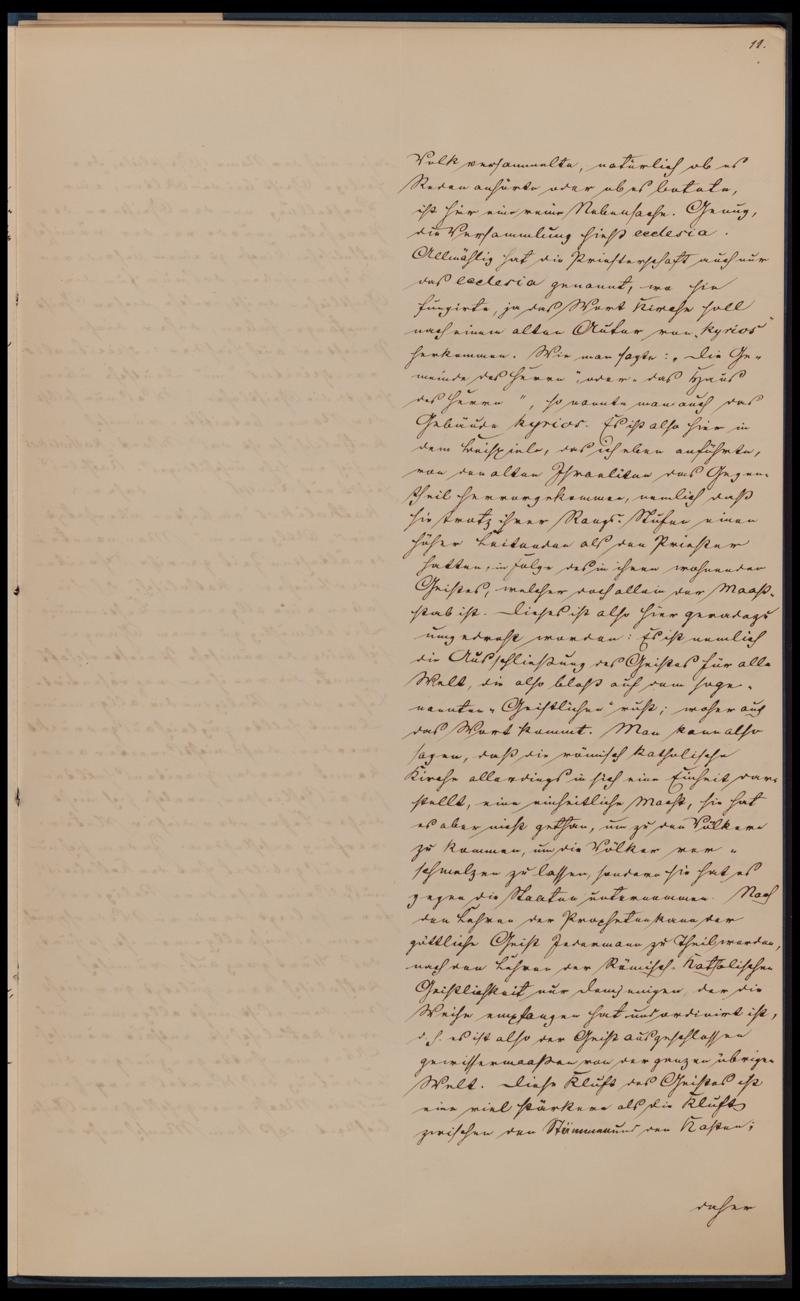 11.
Volk versammelte, natürlich ob es
Reden anhörte oder ob es betete,
ist hier eine reine Nebensache. Genug,
die Versammlung hieß ecclesia.
Allmählig hat die Priesterschaft auch nur
das ecclesia genannt, wo sie
fungirte, ja das Wort Kirche soll
nach einem alten Autor von „kyrios"
herkommen. Wie man sagte: „die Ge-
meinde des Herrn", oder „das Haus
des Herrn", so nannte man auch das
Gebäude kyrios. Es ist also hier in
dem Beispiele, das ich eben anführte,
von den alten Israeliten das Gegen-
theil hervorgekommen, nemlich daß
sie trotz ihrer Rangs-Stufen einen
höher Leitenden als den Priester
hatten, in Folge des in ihnen wohnenden
Geistes, welcher doch allein der Maaß-
stab ist. Dieses ist also hier geradezu
umgedreht worden: Es ist nemlich
die Ausschließung des Geistes für alle
Welt, die also bloß auf dem soge-
nannten „Geistlichen" ruht; woher auch
das Wort kommt. Man kann also
sagen, daß die römisch katholische
Kirche allerdings in sich eine Einheit dar-
stellt, eine einheitliche Macht, sie hat
es aber nicht gethan, um zu den Völkern
zu kommen, um die Völker ver-
schmelzen zu lassen, sondern sie hat es
gegen die Staaten unternommen. Nach
den Lehren der Propheten kann der
göttliche Geist Jedermann zu Theil werden,
nach den Lehren der Römisch-Katholischen
Geistlichkeit nur demjenigen der die
Weihe empfangen hat und ordinirt ist,
d. h. es ist also der Geist ausgeschlossen
gewissermaaßen von der ganzen übrigen
Welt. Diese Kluft des Geistes ist
eine viel stärkere als die Kluft
zwischen den Stämmen und den Kasten;
daher